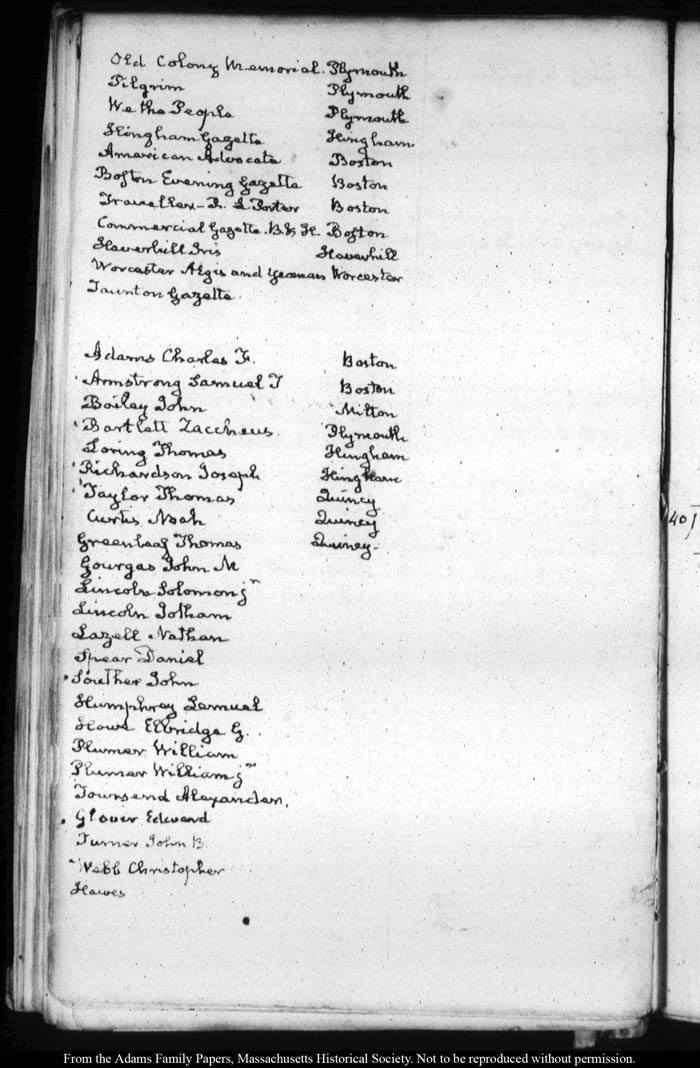 Old Colony Memorial. Plymouth
Pilgrim Plymouth
We the People Plymouth
Hingham Gazette Hingham
American Advocate Boston
Boston Evening Gazette Boston
Traveller - R. L Porter Boston
Commercial Gazette. B. & H. Boston
Haverhill Iris Haverhill
Worcester Ægis and Yeoman Worcester
Taunton Gazette.
Adams Charles F. Boston
Armstrong Samuel T Boston
Bailey John Milton
Bartlett Zaccheus. Plymouth
Loring Thomas Hingham
Richardson Joseph Hingham
Taylor Thomas Quincy
Curtis Noah Quincy
Greenleaf Thomas Quincy-
Gourgas John M
Lincoln Solomon jr
Lincoln Jotham
Lazell Nathan
Spear Daniel
Souther John
Humphrey Lemuel
Howe Elbridge G.
Plumer William
Plumer William jr
Townsend Alexander.
Glover Edward
Turner John B.
Webb Christopher
Hawes
40)
From the Adams Family Papers, Massachusetts Historical Society. Not to be reproduced without permission.